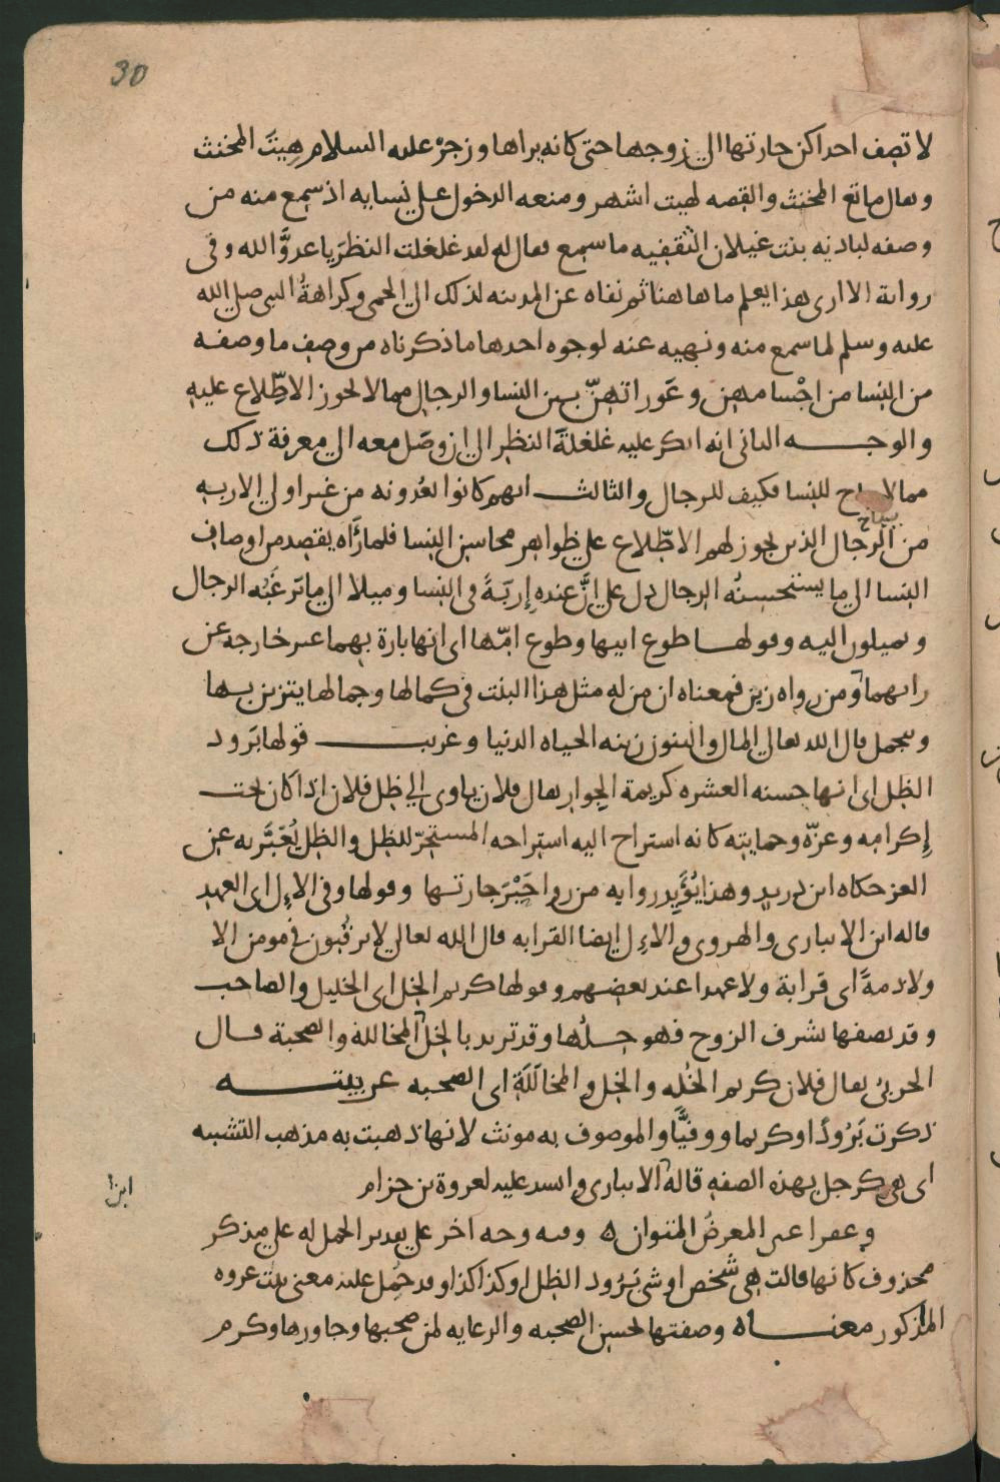 30
لا تصف احداكن جارتها الى زوجها حتى كانه يراها وزجره عليه السلام هيت المخنث
وىقال ماتع المخنث والقصه لهيت اشهر ومنعه الدخول على نسايه اذ سمع منه من
وصفه لبادنه بنت غيلان الثقفيه ما سمع فقال له لقد غلغلت النظر يا عدوَّ الله وفى
رواية الا ارى هذا يعلم ما هاهنا ثم نفاه عن المدينه لذلك الى الحمى وكراهةُ النبى صلى الله
عليه وسلم لما سمع منه ونهيه عنه لوجوه احدها ما ذكرناه من وصف ما وصفه
من النسا من اجْسامهن وعَوراتهنّ بين النسا والرجال مما لا يجوز الاطِّلاع عليه
والوجه الثانى انه انكر عليه غلغلةَ النظر الى ان وصَل معه الى معرفة ذلك
مما لا يباح للنسا فكيف للرجال والثالث انهم كانوا يعُدونه من غير اولى الاربه
يباح
من الرجال الذين يجوز لهم الاطّلاع على ظواهر محاسن النسا فلما رَأاه يقصد من اوصاف
النسا الى ما يستحسنُه الرجال دل على انَّ عنده إربَةً فى النسا وميلا الى ما ترغَبُه الرجال
ويميلون اليه وقولها طوع ابيها وطوع امّها اى انها بارة بهما غير خارجه عن
رايهما ومن رواه زين فمعناه ان من له مثل هذا البنت فى كمالها وجمالها يتزين بها
ويتجمل قال الله تعالى المال والبنون زينه الحياه الدنيا وغريب قولها بَرود
الظل اى انها حسنه العشره كريمة الجوار يقال فلان ياوى الى ظل فلان اذا كان تحت
إكرامه وعزّه وحمايته كانه استراح اليه استراحه المستحِرّ للظل والظل يُعَبَّر به عن
العز حكاه ابن دريد وهذا يُؤَيِد روايه من روا حَبْرَ جارتها وقولها وفى الاءل اى العهد
قاله ابن الانبارى والهروى والاءل ايضا القرابه قال الله تعالى لا يرقُبون فى مومن الا
ولا ذمةً اى قرابة ولا عهدا عند بعضهم وقولها كريم الخل اى الخليل والصاحب
وقد تصفها بشرف الزوج فهو خلُها وقد تريد بالخل المخالله والصحبة قال
الحربىُ يقال فلان كريم الخُله والخل والمخالَلَة اى الصحبه عربيته
ذكرت بَرُودًا وكريما ووفيًّا والموصوف به مونث لانها ذهبت به مذهب التشبيه
اى هى كرجل بهذه الصفه قاله الانبارى وانشد عليه لعروة بن حزام
ابن
وعفرا عنى المعرضُ المتوان ه وفيه وجه اخر على تقدير الحمل له على مذكر
محذوف كانها قالت هى شخص او شى بَرُود الظل او كذا كذا وقد حُمل عليه معنى بيت عروه
المذكور معناه وصفتها بحسن الصحبه والرعايه لمن صحبها وجاورها وكرم